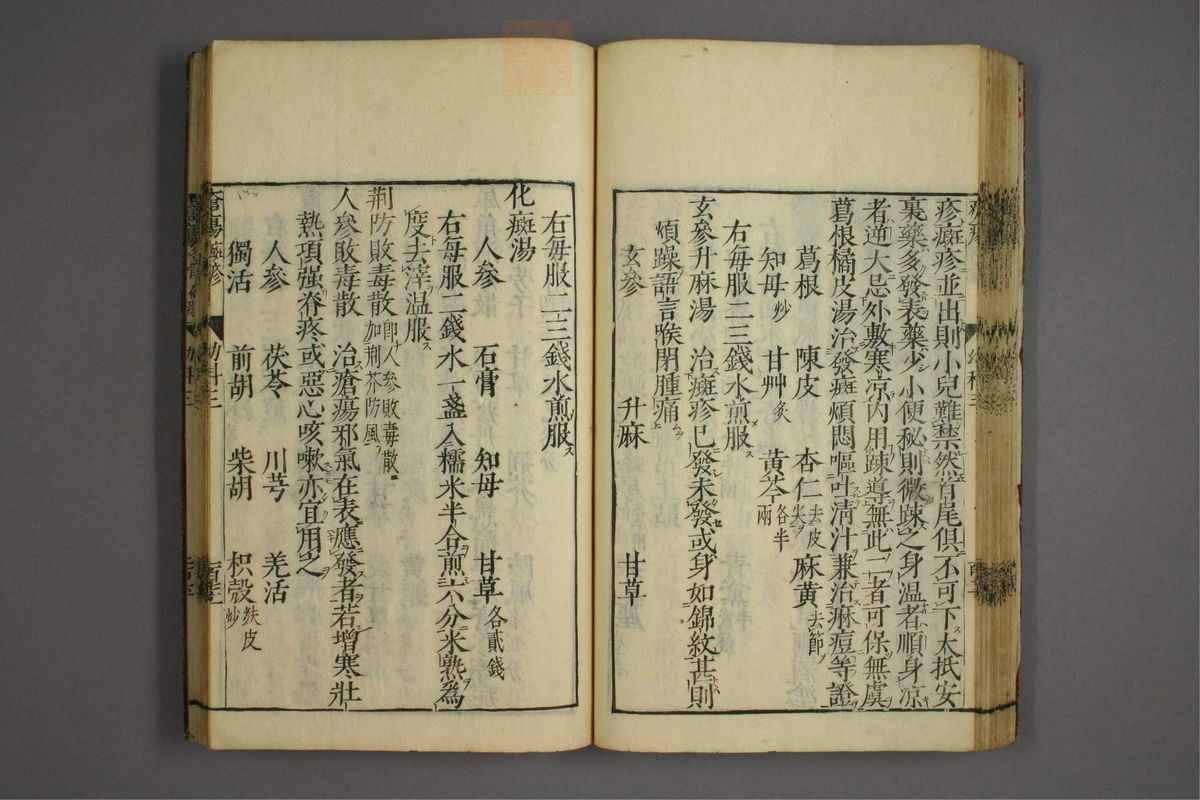 疹癍疹並出則小兒難禁然首尾俱不可下大抵安
裏藥多發表藥少小便秘則微踈之身溫者順身凉
者逆大忌外敷寒凉内用踈導無此二者可保無虞
葛根橘皮湯治發癍煩悶嘔吐清汁兼治麻痘等證
葛根 陳皮 杏仁去皮尖 麻黃去節
知母炒 甘艸炙 黃芩各半兩
右每服二三錢水煎服
玄參升麻湯 治癍疹已發未發或身如錦紋甚則
煩躁語言喉閉腫痛
玄參 升麻 甘草
右每服二三錢水煎服
化癍湯
人參 石膏 知母 甘草各貳錢
右每服二錢水一盞入糯米半合煎六分米熟爲
度去滓温服
荆防敗毒散即人參敗毒散加荆芥防風
人參敗毒散 治瘡瘍邪氣在表應發者若增寒壯
熱項强脊疼或惡心咳嗽亦宜用之
人參 茯苓 川芎 羌活
獨活 前胡 柴胡 枳殼麩皮炒
幼科三